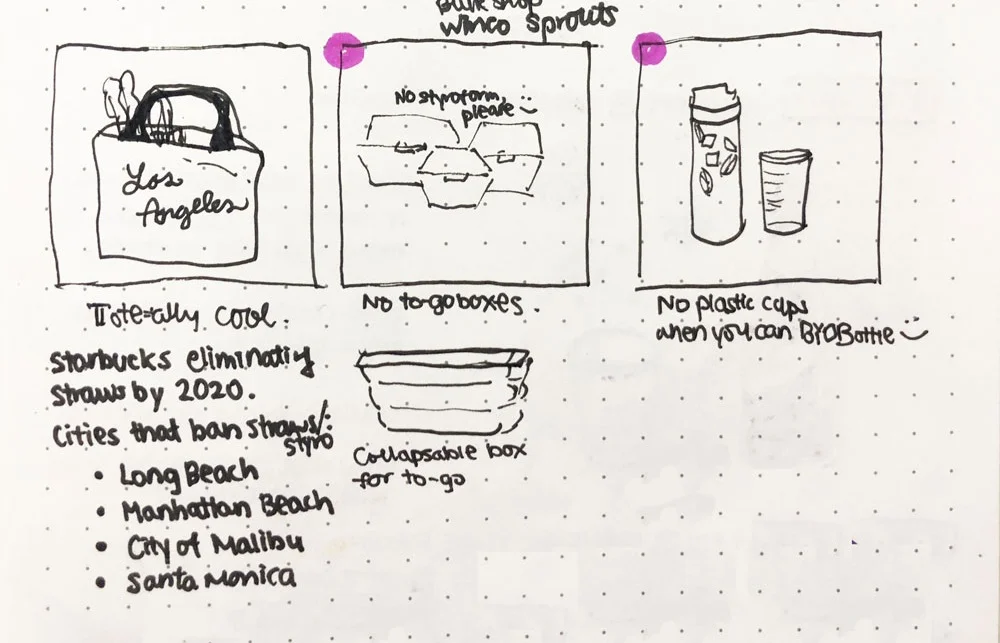 Bulk shop
Winco Sprouts
Los
Angeles
No styrofoam,
please
Tote-ally cool.
No to-go boxes.
No plastic cups
when you can BYOBottle
Starbucks eliminating
straws by 2020.
Cities that ban straws/:
styro
• Long Beach
• Manhattan Beach
• City of Malibu
• Santa Monica
Collapsable box
for to-go